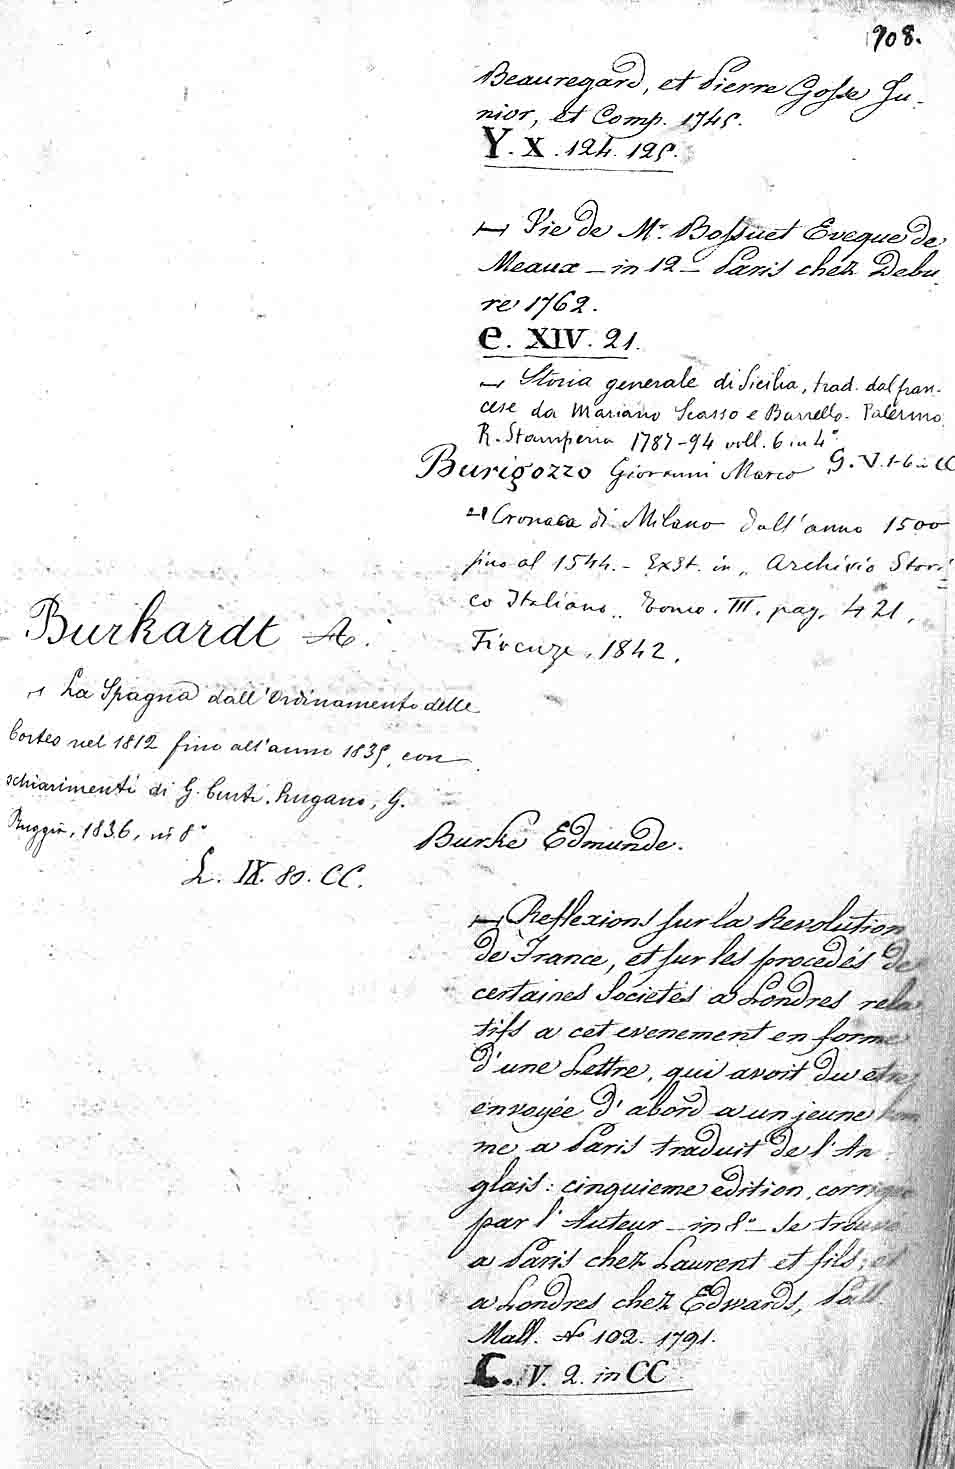 908.
Beauregard, et Pierre Gosse Ju-
nior, et Comp. 1745.
Y. X. 124. 125.
Vie de Mr. Bossuet Eveque de
Meaux - in 12 - Paris chez Debu
re 1762.
e. XIV. 21.
Storia generale di Sicilia, trad. dal fran-
cese da Mariano Scasso e Borrello. Palermo
R. Stamperia 1787-94 voll. 6 in 4°
G. V. 1-6 in CC
Burigozzo Giovanni Marco
Cronaca di Milano dall'anno 1500
fino al 1544. - Exst. in „ Archivio Stori
co Italiano „ Tomo. III. pag. 421.
Firenze, 1842.
Burkardt A.
La Spagna dall'ordinamento delle
Cortes nel 1812 fino all'anno 1835, con
schiarimenti di G. Curti. Lugano, G.
Ruggia, 1836, in 8°
L. IX. 80. CC.
Burke Edmunde.
Reflexions sur la Revolution
de France, et sur les procedés de
certaines Societés a Londres rela
tifs a cet evenement en forme
d'une Lettre, qui avoit du etre
envoyée d'abord a un jeune hom
me a Paris traduit de l'An
glais: cinquieme edition, corrigée
par l'Auteur - in 8° - Se trouve
a Paris chez Laurent et fils, et
a Londres chez Edwards, Pall
Mall. No 102. 1791.
C. V. 2. in CC